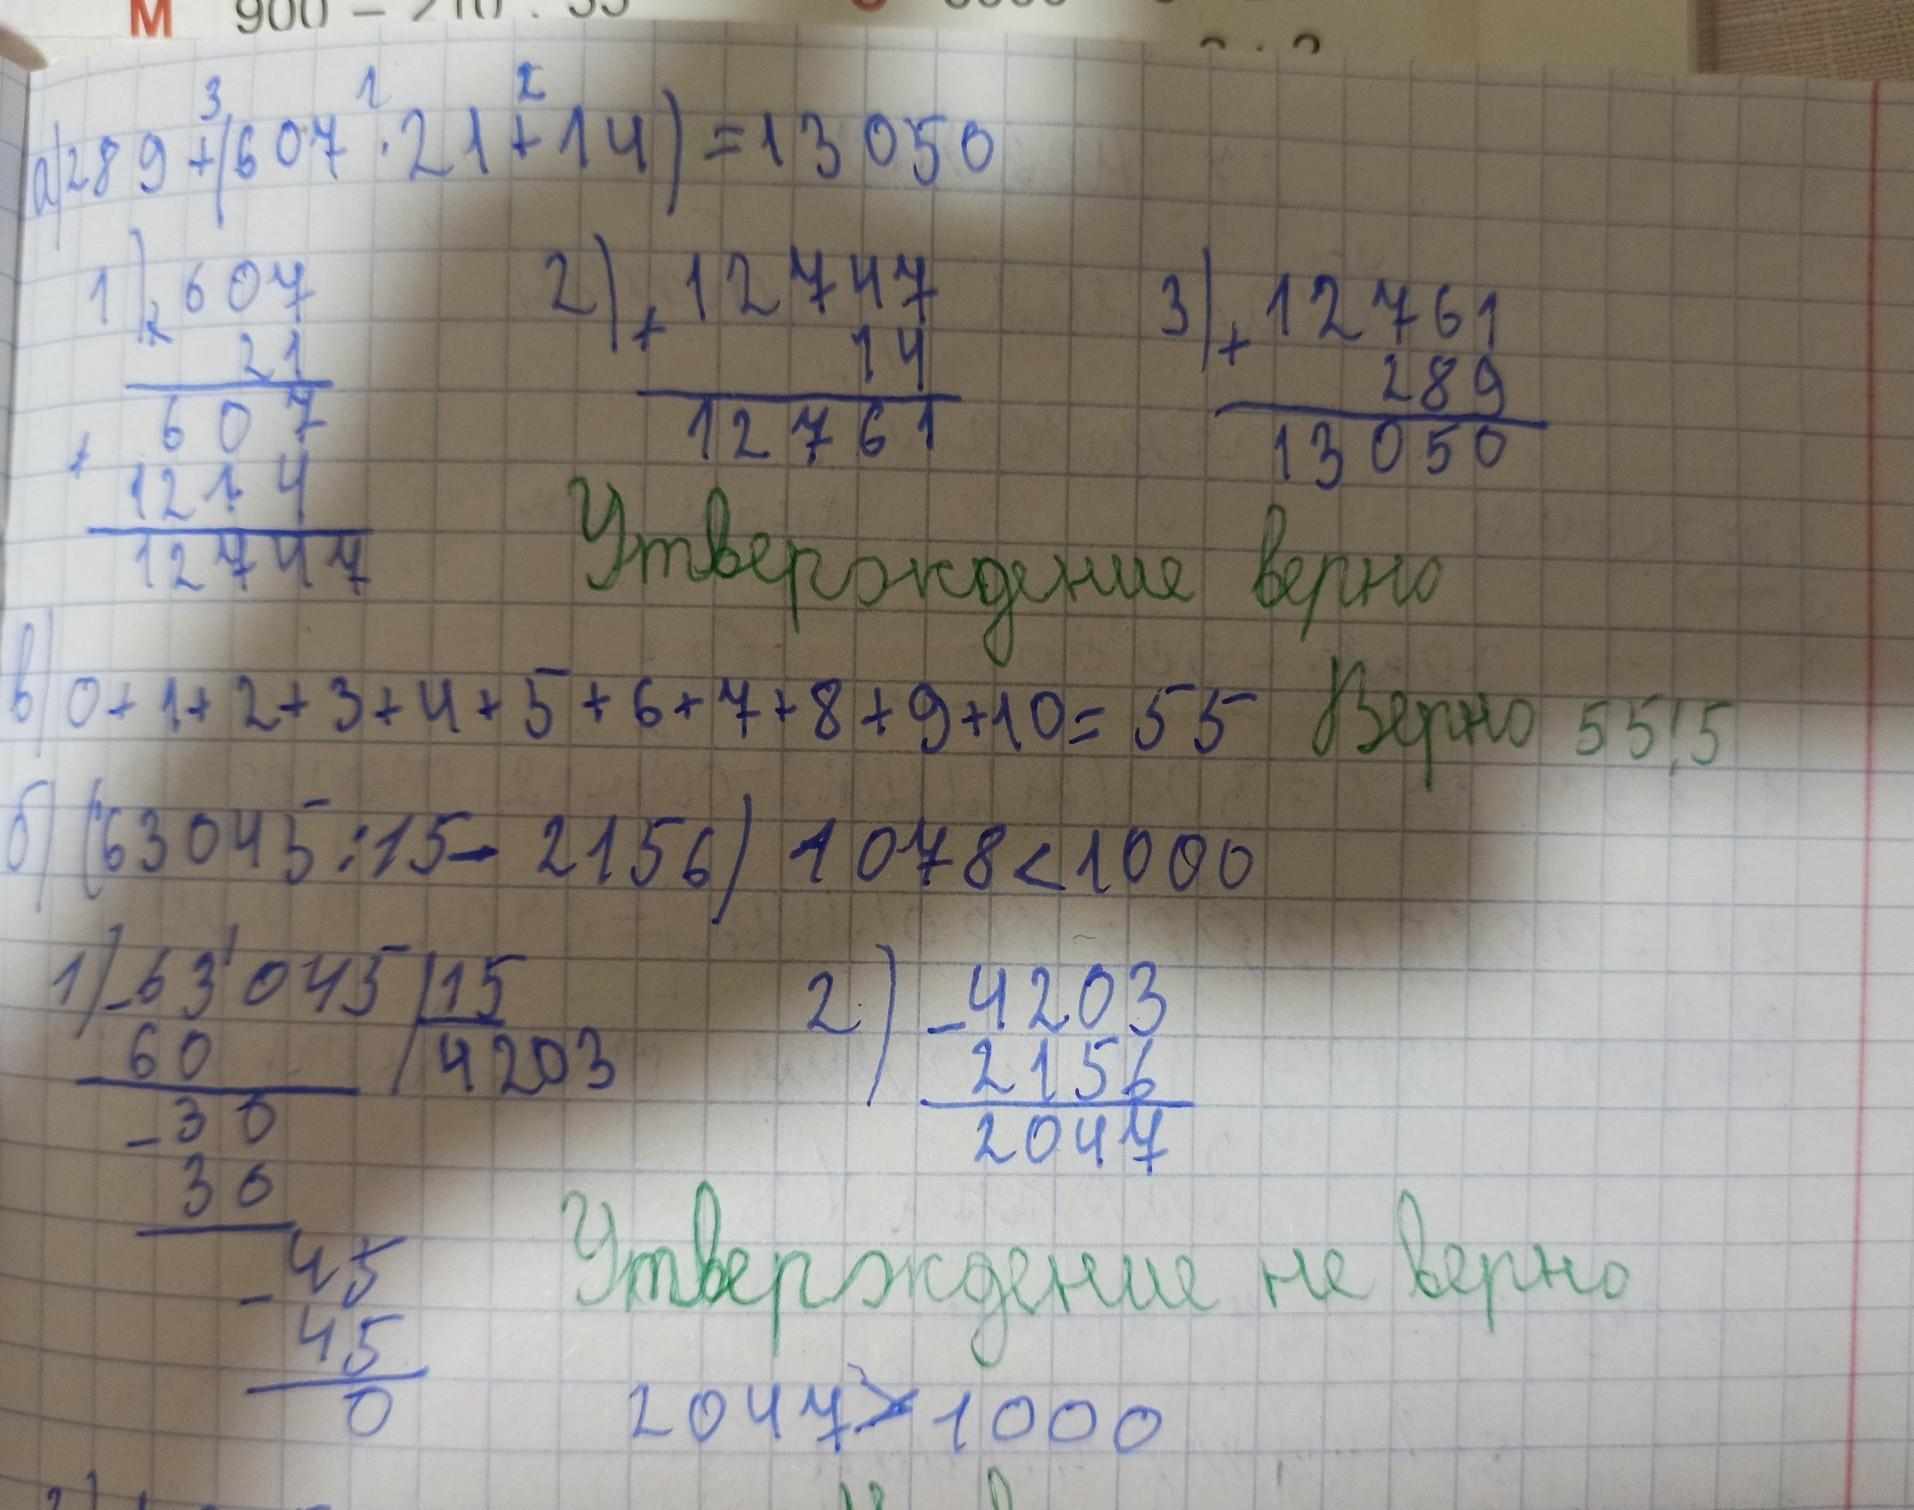 М 900 - 210 : 35
3 1 2
а) 289 + (607 · 21 + 14) = 13050
1) × 607
21
607
+ 1214
12747
2) + 12747
14
12761
3) + 12761
289
13050
Утверждение верно
в) 0+1+2+3+4+5+6+7+8+9+10= 55 Верно 55⋮5
б) (63045:15- 2156) 1078<1000
1) -63'045 15
60 4203
-30
30
-45
45
0
2) -4203
2156
2047
Утверждение не верно
2047>1000